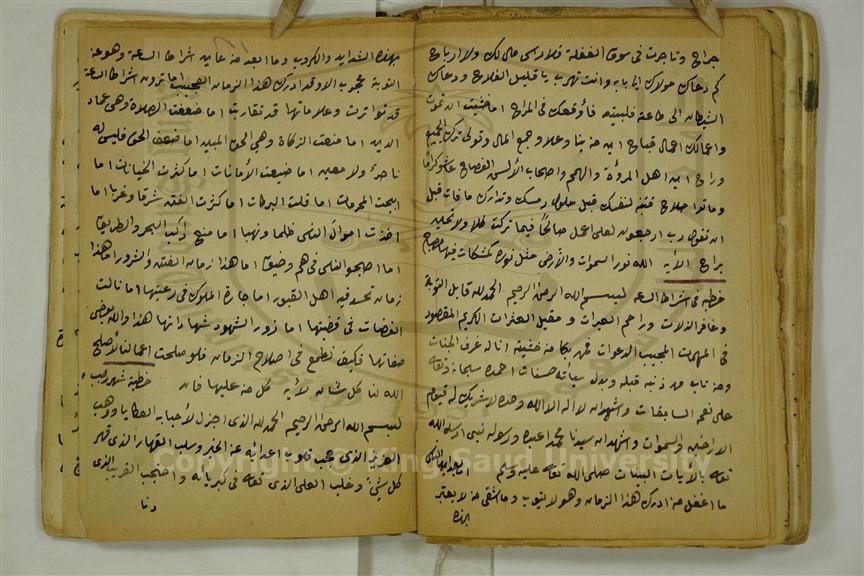 جراح وتاجرت في سوق الغفلة فلا راس مال لك ولا ارباح
كم دعاك مولاك الى بابه وانت تهرب يا قليل الفلاح ودعاك
الشيطان الى طاعته فلبيته فأوقعك في المزاح اما خشيت ان تموت
واعمالك اعمال قباح اين من بنا وعلا وجمع المال وتولى ترك الجميع
وراح اين اهل المروة والهمم واصحاب الألسن الفصاح عاشو كراما
وماتوا صلاح فتنبه لنفسك قبل حلول رمسك وتدارك ما فات قبل
ان تقول رب ارجعون لعلي اعمل صالحا فيما تركت كلا ولا تحليه
براح الأية الله نور السموات والأرض مثل نوره كمشكات فيها مصباح
خطبه في اشراط الساعه لبسم الله الرحمن الرحيم الحمد لله قابل التوبة
وغافر الزلات وراحم العبرات ومقيل العثرات الكريم المقصود
في المهمات المجيب الدعوات فمن بكا من خشيته اناله غرف الجنات
ومن تاب من ذنبه قبله وبدل سيأته حسنات احمده سبحانه وتعالى
على نعمه السابغات واشهد ان لا اله الا الله وحده لا شريك له قيوم
الارضين والسموات واشهد ان سيدنا محمد اعبده ورسوله نبي ارسله الله
تعالى بالآيات البينات صلى الله تعالى عليه وسلم اما بعد ايها الناس
ما اغفل من ادرك هذا الزمان وهو لا يتوب وما اشقى من لا يعتبر
بهذه
بهذه الشدايد والكروب وما ابعد من عاين اشراط الساعة وهو عن
التوبة محجوب الا وقد ادرك هذا الزمان العجيب اما ترون اشراط الساعة
قد تواترت وعلاماتها قد تقاربت اما ضعفت الصلاة وهي عماد
الدين اما منعت الزكاة وهي الحق المبين اما ضعف الحق فليس له
ناصر ولا معين اما ضيعت الأمانات اما كثرت الخيانات اما
ابيحت المحرمات اما قلت البركات اما كثرت الفتن شرقا وغربا اما
اخذت اموال الناس ظلما ونهبا اما منع راكب البحر والطريق
اما اصبحو الناس في هم وضيق اما هذا زمان الفتن والشرور اما هذا
زمان تحسد فيه اهل القبور اما جارة الملوك في رعيتها اما نالت
القضات في قضيتها اما زور الشهود شهاداتها هذا والله بعض
صفاتها فكيف نطمع في اصلاح الزمان فلو صلحت اعمالنا لأصلح
الله لنا كل شان لأية كل من عليها فان خطبة شهر رجب
لبسم الله الرحمن الرحيم الحمد لله الذي اجزل لأحبابه العطايا ووهب
العزيز الذي حجب قلوب اعدائه عن الخير وسلب القهار الذي قهر
كل شيئ وغلب العلي الذي تعالى في كبريائه واحتجب القريب الذي
دنا
Copyright © King Saud University